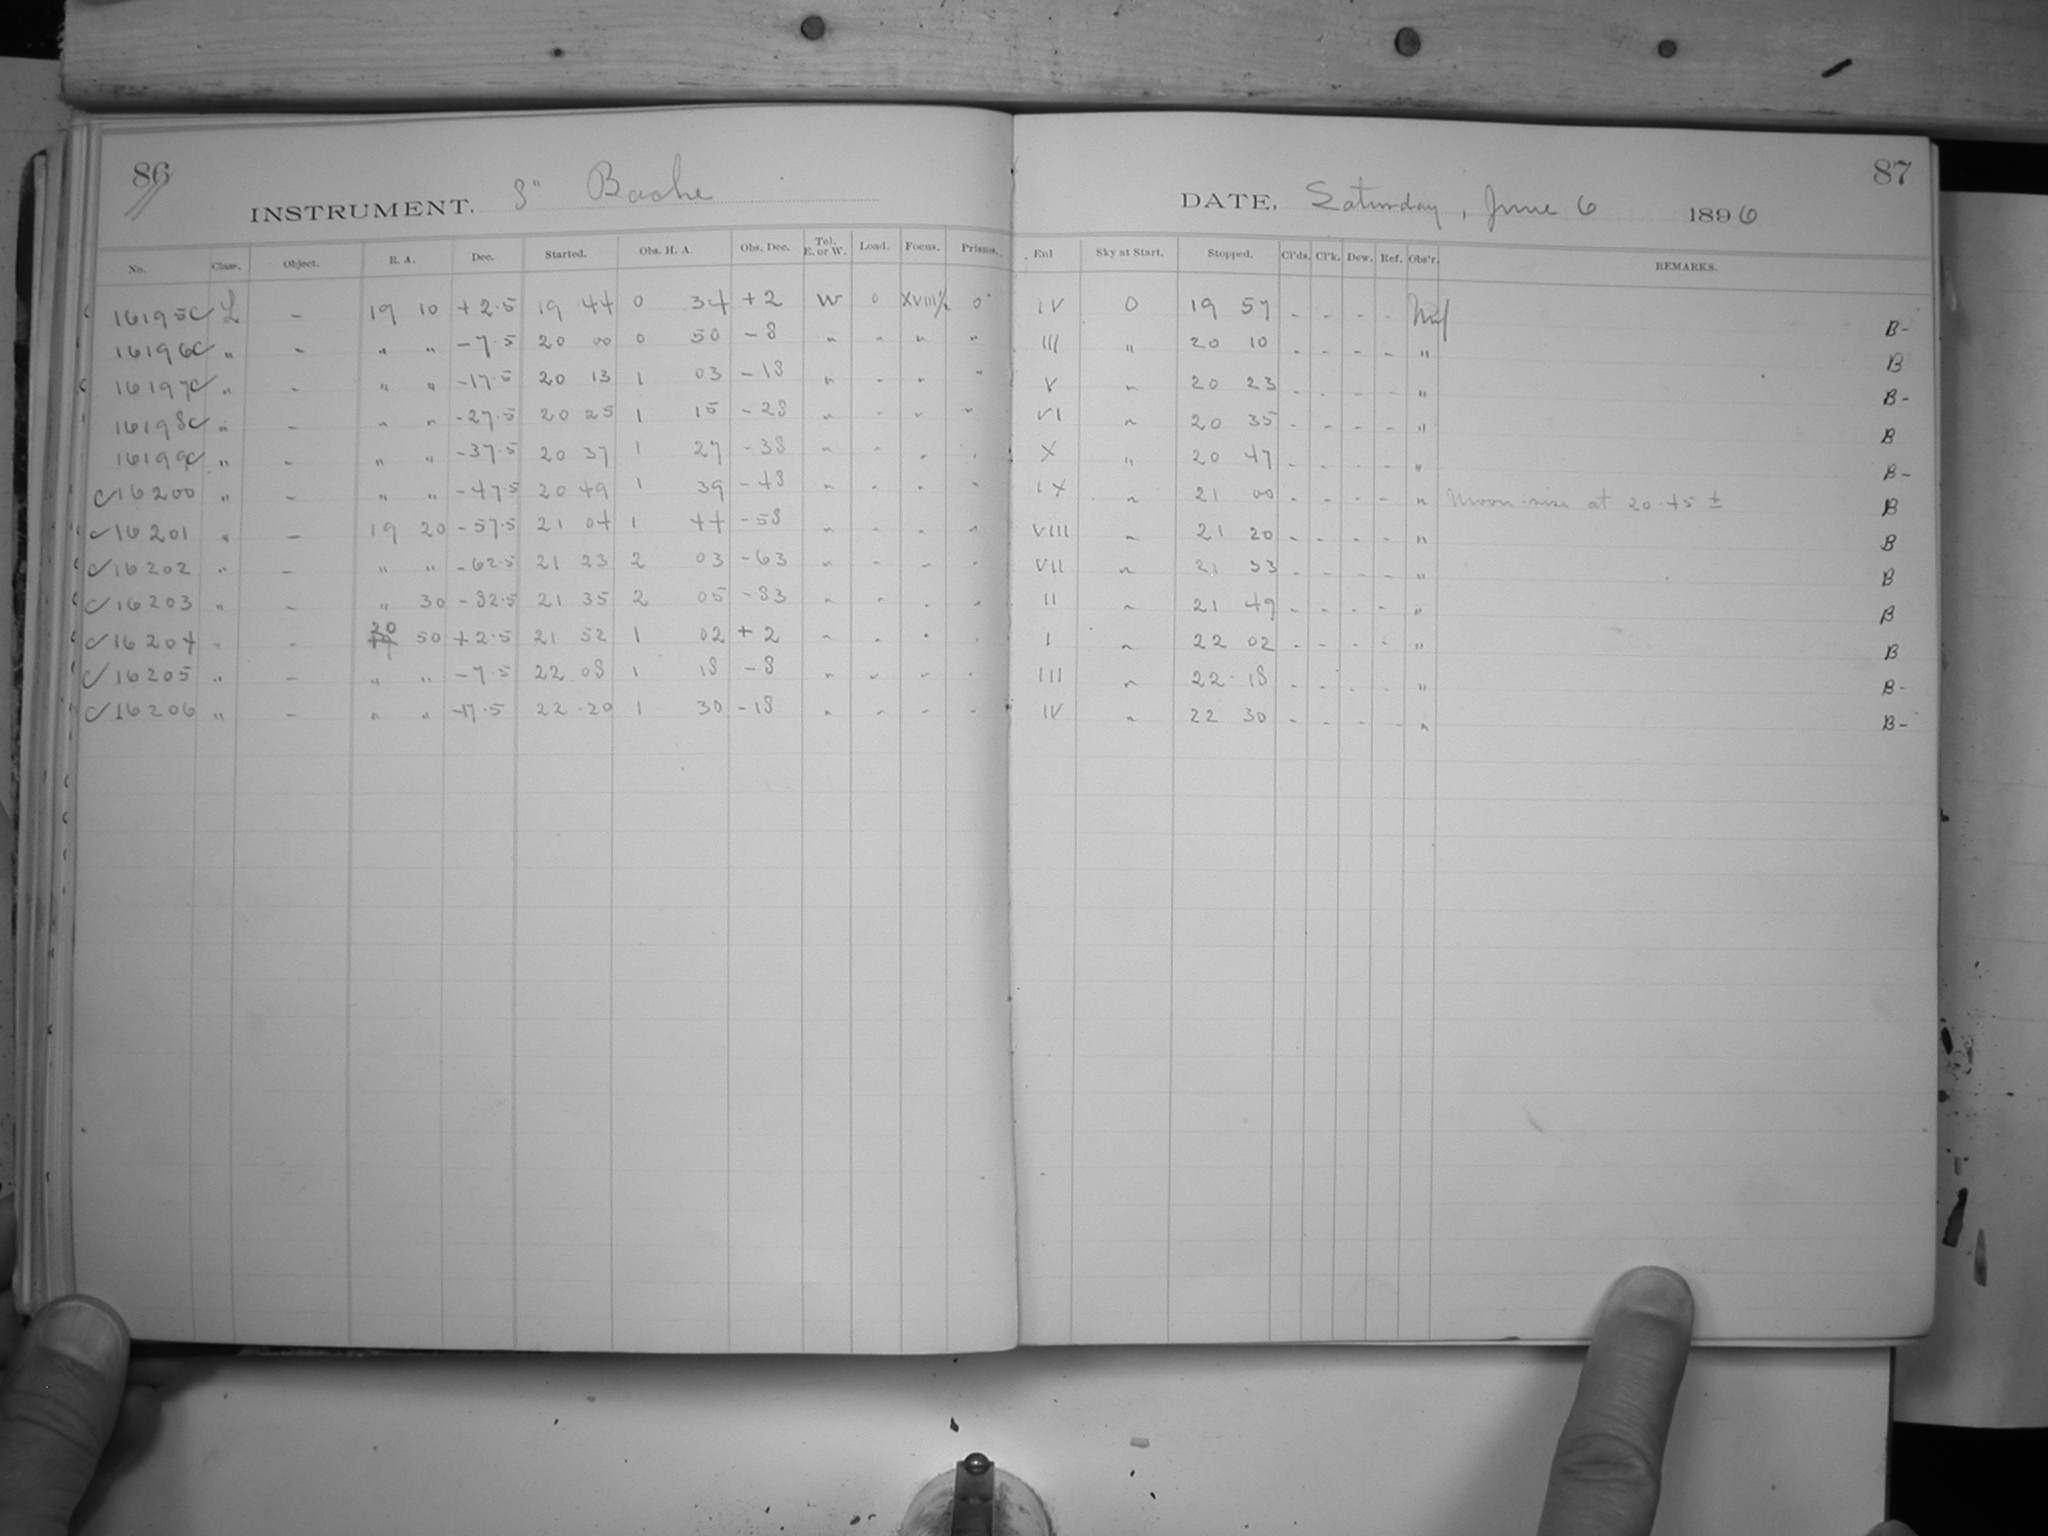 86 87
INSTRUMENT. 8" Bache DATE, Saturday, June 6 1896
No. Class. Object. R. A. Dec. Started. Obs. H. A. Obs. Dec. Tel. E. or W. Load. Focus. Prisms. Enl Sky at Start. Stopped. Cl'ds. Cl'k. Dew. Ref. Obs'r. REMARKS.
16195C L - 19 10 +2.5 19 44 0 34 +2 W 0 XVIII½ 0 IV 0 19 57 - - - - B-
16196C " - " " -7.5 20 00 0 50 -8 " " " " III " 20 10 - - - - " B
16197C " - " " -17.5 20 13 1 03 -18 " " " " V " 20 23 - - - - " B-
16198C " - " " -27.5 20 25 1 15 -28 " " " " VI " 20 35 - - - - " B
16199C " - " " -37.5 20 37 1 27 -38 " " " " X " 20 47 - - - - " B-
C16200 " - " " -47.5 20 49 1 39 -48 " " " " IX " 21 00 - - - - " Moon-rise at 20.45 ± B
C16201 " - 19 20 -57.5 21 04 1 44 -58 " " " " VIII " 21 20 - - - - " B
C16202 " - " " -62.5 21 23 2 03 -63 " " " " VII " 21 33 - - - - " B
C16203 " - " 30 -82.5 21 35 2 05 -83 " " " " II " 21 49 - - - - " B
C16204 " - 20 50 +2.5 21 52 1 02 +2 " " " " I " 22 02 - - - - " B
C16205 " - " " -7.5 22 08 1 18 -8 " " " " III " 22 18 - - - - " B-
C16206 " - " " -17.5 22 20 1 30 -18 " " " " IV " 22 30 - - - - " B-